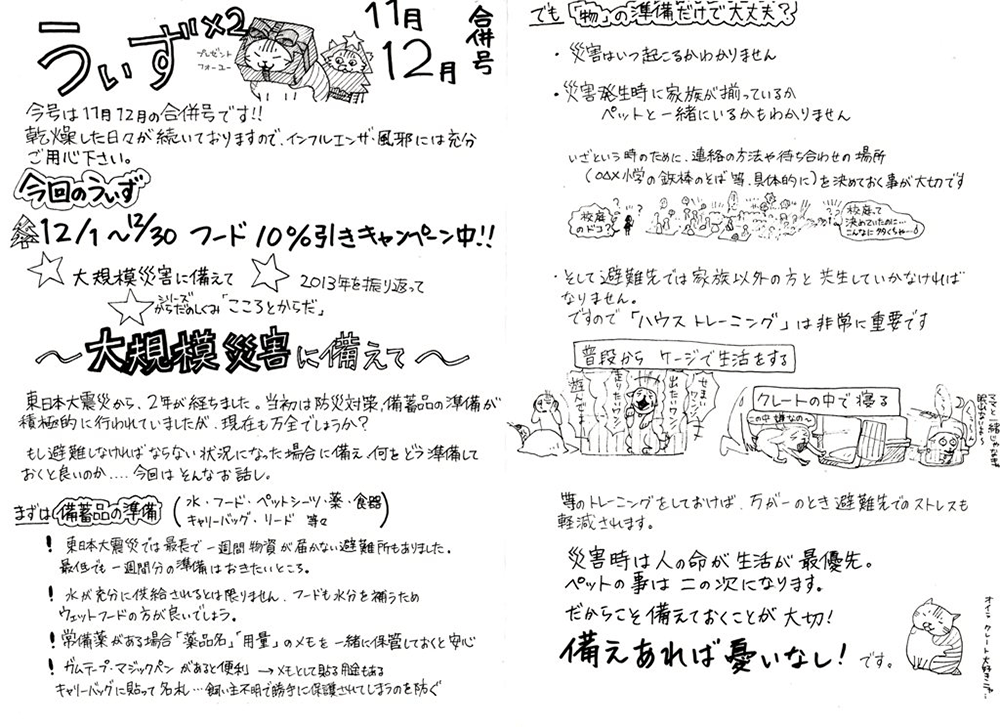 うぃず×2
プレゼント
フォーユー
11月
12月
合併号
今号は11月12月の合併号です!!
乾燥した日々が続いておりますので、インフルエンザ・風邪には充分
ご用心下さい。
今回のうぃず
12/1〜12/30 フード 10%引きキャンペーン中!!
大規模災害に備えて
2013年を振り返って
シリーズ
からだのしくみ「こころとからだ」
〜大規模災害に備えて〜
東日本大震災から、2年が経ちました。当初は防災対策,備蓄品の準備が
積極的に行われていましたが、現在も万全でしょうか?
もし避難しなければならない状況になった場合に備え何をどう準備して
おくと良いのか....今回はそんなお話し。
まずは備蓄品の準備
(水・フード・ペットシーツ・薬・食器
キャリーバッグ・リード 等々)
! 東日本大震災では最長で一週間物資が届かない避難所もありました。
最低でも一週間分の準備はおきたいところ。
! 水が充分に供給されるとは限りません、フードも水分を補うため
ウェットフードの方が良いでしょう。
! 常備薬がある場合「薬品名」「用量」のメモを一緒に保管しておくと安心
! ガムテープ・マジックペンがあると便利 →メモとして貼る用途もある
キャリーバッグに貼って名札…飼い主不明で勝手に保護されてしまうのを防ぐ
でも「物」の準備だけで大丈夫?
・災害はいつ起こるかわかりません
・災害発生時に家族が揃っているか
ペットと一緒にいるかもわかりません
いざという時のために、連絡の方法や待ち合わせの場所
(○△×小学の鉄棒のとば等、具体的に)を決めておく事が大切です
校庭
のドコ?
校庭って
決めていたのに…
こんなに多くちゃ…
・そして避難先では家族以外の方と共生していかなければ
なりません。
ですので「ハウストレーニング」は非常に重要です
普段からケージで生活をする
せまいワンッ
出たいワンッ
走りたいワン
遊んでョ
クレートの中で寝る
この中嫌なの〜
等のトレーニングをしておけば、万が一のとき避難先でのストレスも
軽減されます。
災害時は人の命が生活が最優先。
ペットの事は二の次になります。
だからこそ備えておくことが大切!
備えあれば憂いなし!です。
オイラ クレート大好きニャ…